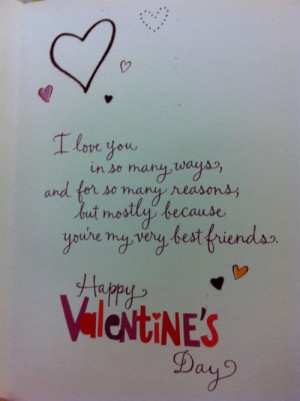 I love you
in so many ways,
and for so many reasons,
but mostly because
you're my very best friends.
Happy
ValENtiNE'S
Day